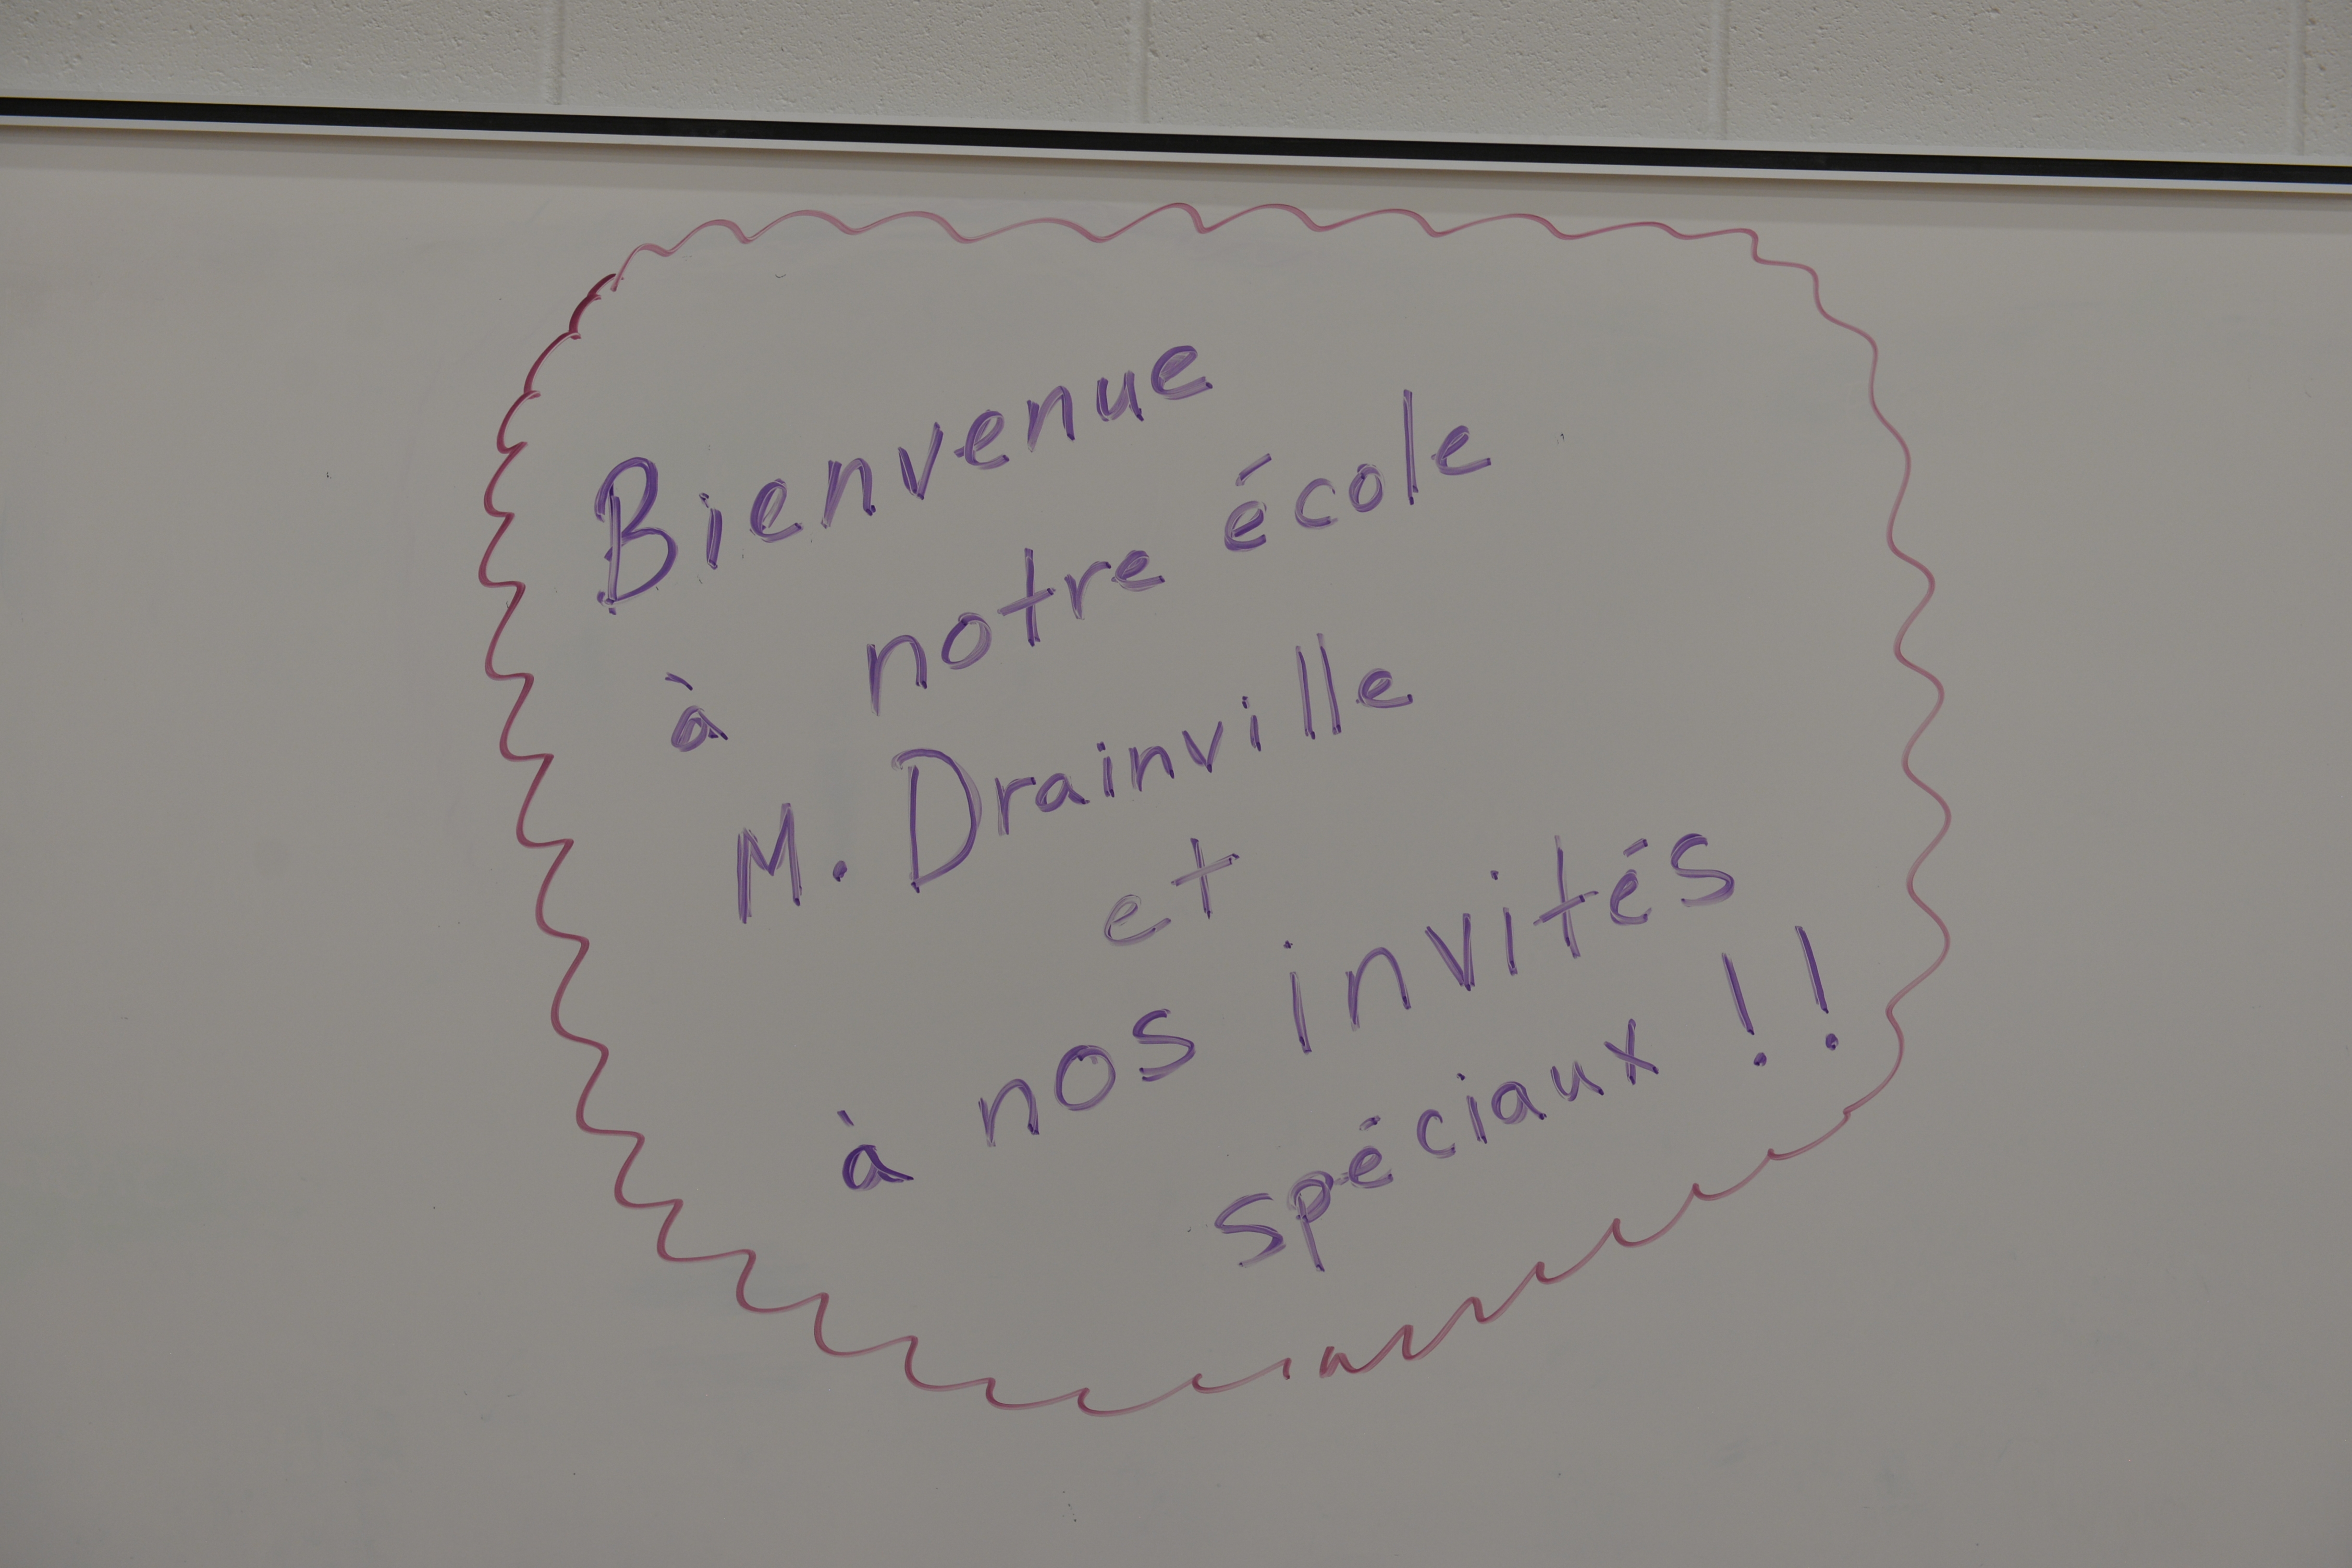 Bienvenue
à notre école
M. Drainville
et
à nos invités
spéciaux !!